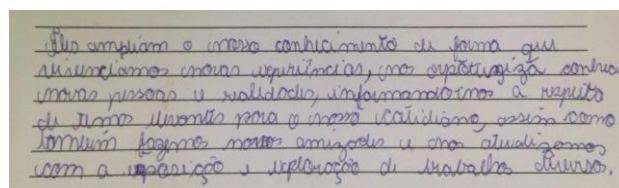 Eles ampliam o nosso conhecimento de forma que
vivenciamos novas experiências, nos oportuniza conhecer
novas pessoas e realidades, informando-nos a respeito
de temas relevantes para o nosso cotidiano, assim como
também fazemos novas amizades e nos atualizamos
com a exposição e exploração de trabalhos diversos.